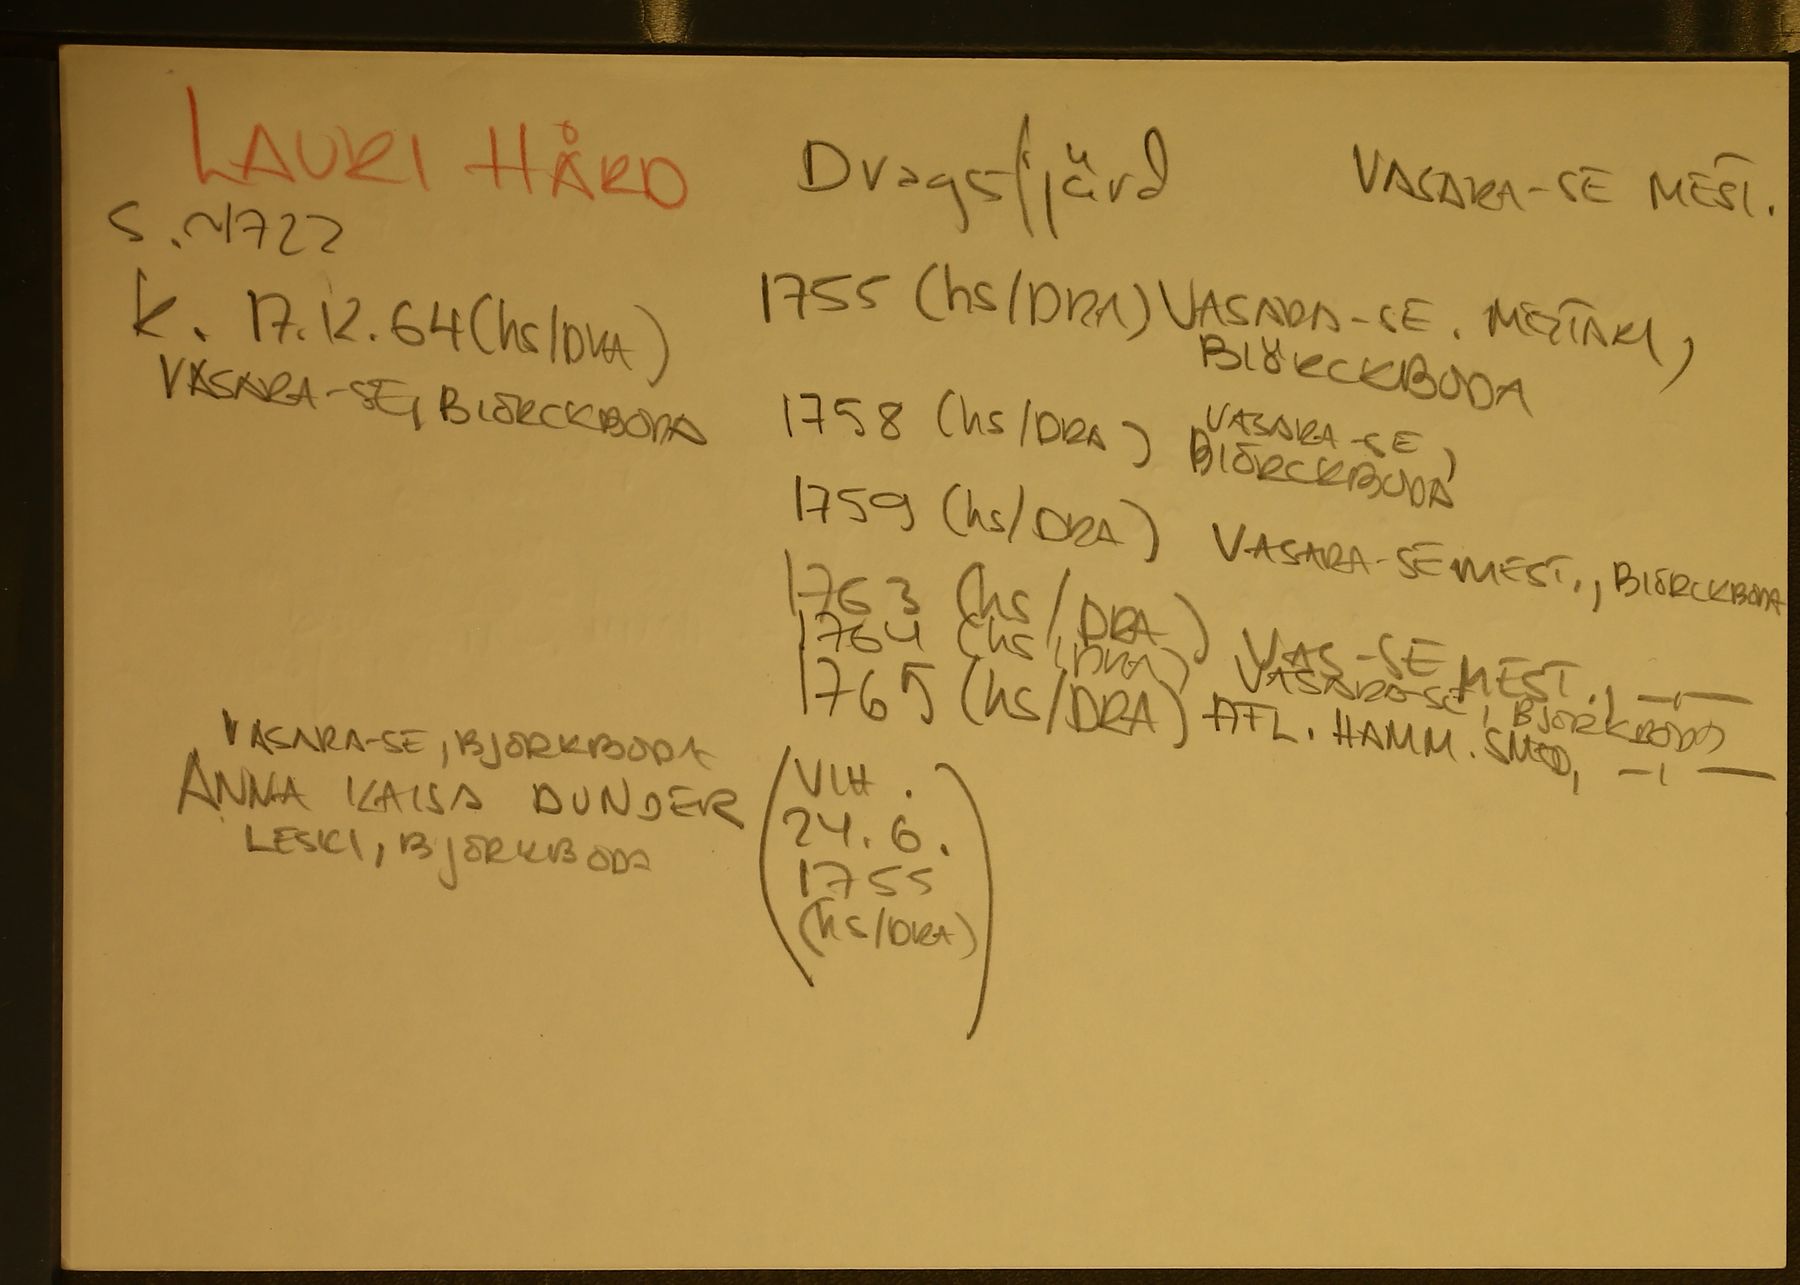 LAURI HÅRD
Dragsfjärd
VASARA-SE MEST.
S. ~1722
k. 17.12.64 (hs/DRA)
VASARA-SE, BIÖRCKBODA
1755 (hs/DRA) VASARA-SE. MESTARI,
BIÖRCKBODA
1758 (hs/DRA) VASARA-SE,
BIÖRCKBODA
1759 (hs/DRA) VASARA-SE MEST., BIÖRCKBODA
1763 (hs/DRA) VAS-SE MEST., —,,—
1764 (hs/DRA) VASARA-SE, BJÖRKBODA
1765 (hs/DRA) AFL. HAMM. SMED, —,,—
VASARA-SE, BJÖRKBODA
ANNA KAISA DUNDER
LESKI, BJÖRKBODA
(VIH.
24.6.
1755
(hs/DRA))